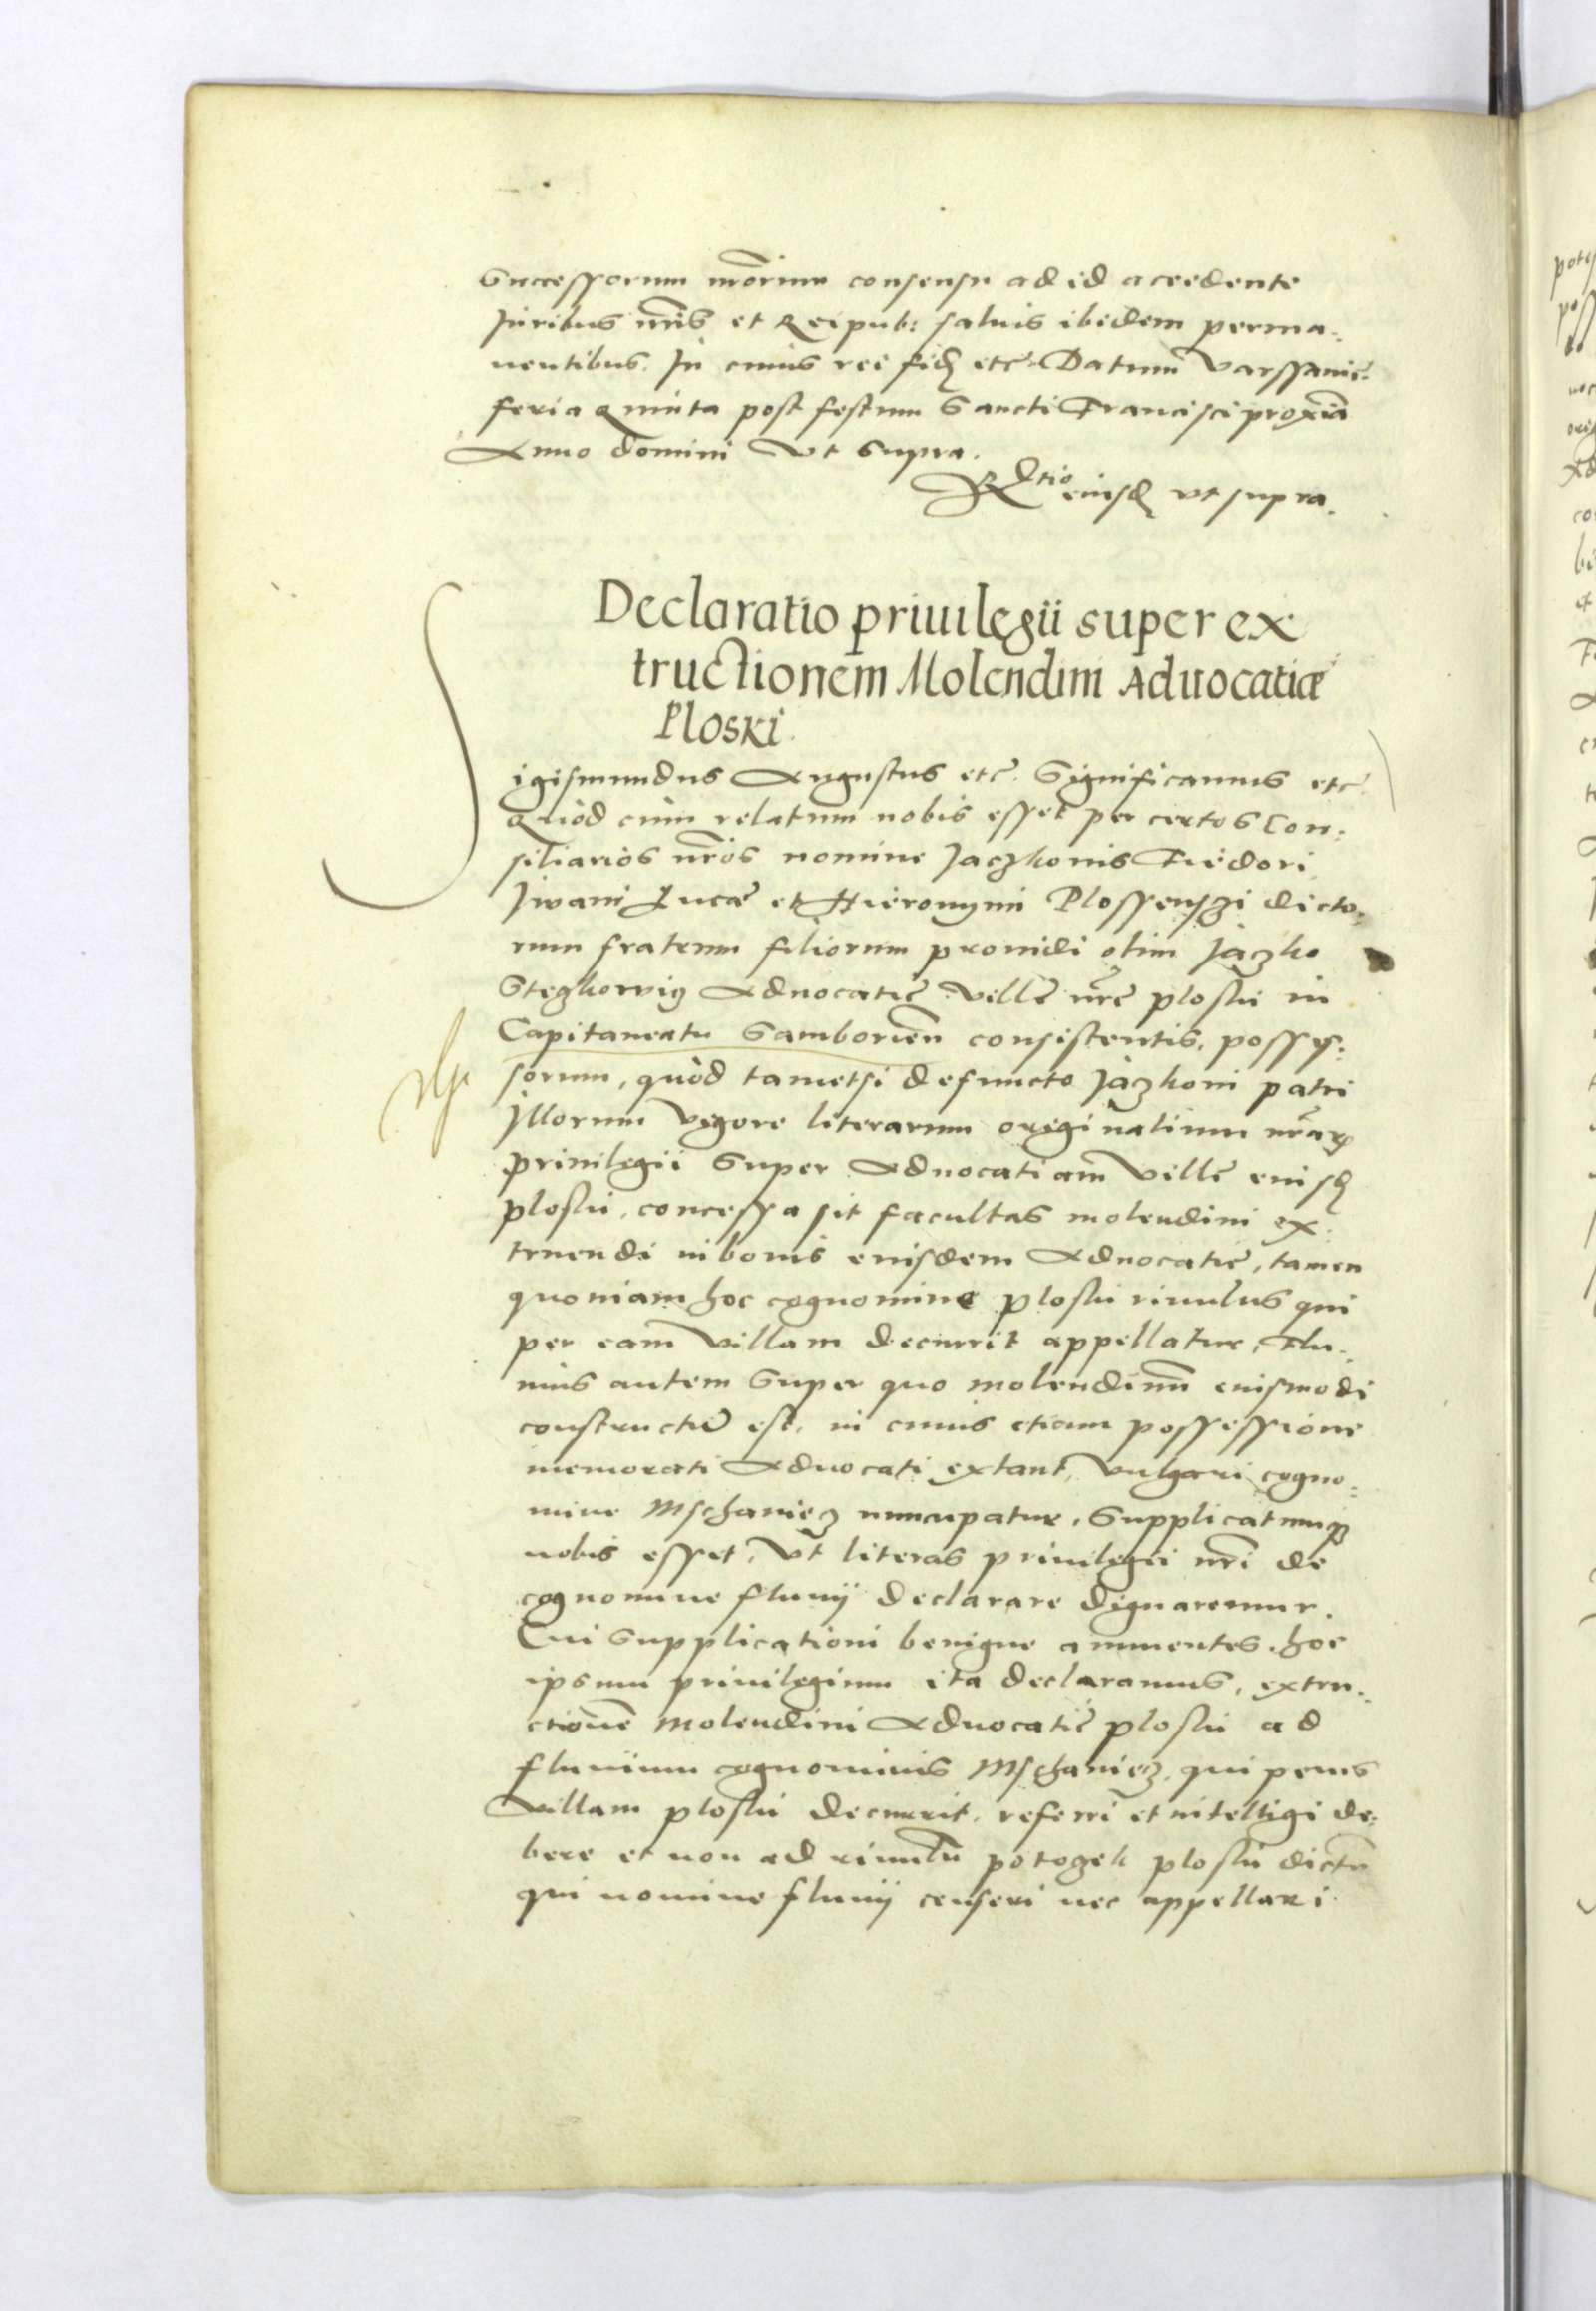 Successorum nrorum consensu ad id accedente
Juribus nris et Reipub: saluis ibidem perma-
nentibus. In cuius rei fid etc. Datum Varssauie.
feria Quinta post festum Sancti Francisci proxia
Anno domini Vt supra.
Rtio eiusd vt supra.
Declaratio priuilegii super ex
tructionem Molendini Aduocatiæ
Ploski.
Sigismundus Augustus etc. Significamus etc.
Quod cum relatum nobis esset per certos Con-
siliarios nros nomine Jaczkonis Fiedori
Jwani Lucæ et Hieronymi Plossenszi dicto-
rum fratrum filiorum prouidi olim Jaczko
Steczkowicz Aduocatie Ville nre ploski in
Capitaneatu Samborien consistentis, posses-
sorum, quòd tametsi defuncto Jaczkoni patri
Illorum vigore literarum originalium nrar
priuilegii super Aduocatiam Ville eiusd
ploski, concessa sit facultas molendini ex-
truendi in bonis eiusdem Aduocatie, tamen
quoniam hoc cognomine ploski riuulus qui
per eam Villam decurrit appellatur, Flu-
uius autem super quo molendinu eiusmodi
constructu est, in cuius etiam possessione
memorati Aduocati extant, vulgari cogno-
mine Mschaniecz nuncupatur, Supplicatumq
nobis esset, Vt literas priuilegii nri de
cognomine fluuij declarare dignaremur.
Cui supplicationi benigne annuentes, hoc
ipsum priuilegium ita declaramus, extru-
ctione molendini Aduocatie ploski ad
fluuium cognominis Mschaniecz, qui penes
Villam ploski decurrit, referri et intelligi de-
bere et non ad riuulu potogek ploski dictu
qui nomine fluuij censeri nec appellari